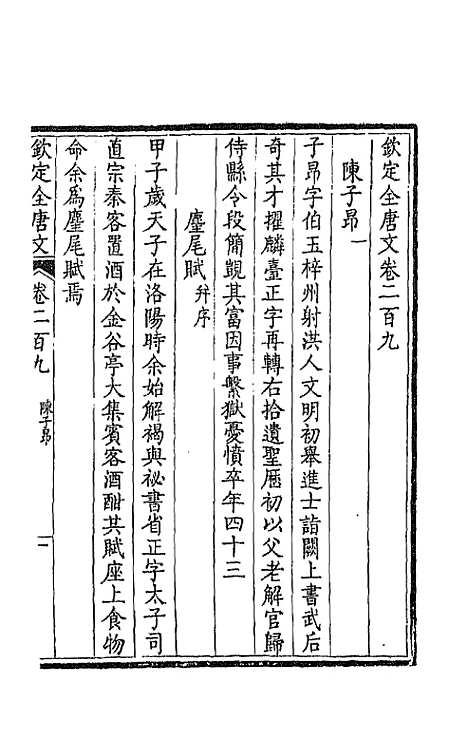 欽定全唐文卷二百九
陳子昂一
子昂字伯玉梓州射洪人文明初舉進士詣闕上書武后
奇其才擢麟臺正字再轉右拾遺聖厯初以父老解官歸
侍縣令段簡覬其富因事繫獄憂憤卒年四十三
麈尾賦幷序
甲子歲天子在洛陽時余始解褐與祕書省正字太子司
直宗秦客置酒於金谷亭大集賓客酒酣共賦座上食物
命余爲麈尾賦焉
欽定全唐文 卷二百九 陳子昂 一